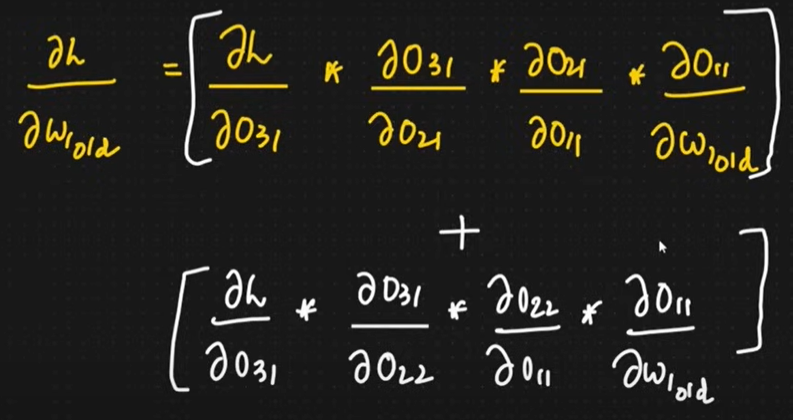 ∂h/∂w₁old = [∂h/∂O31 * ∂O31/∂O21 * ∂O21/∂O11 * ∂O11/∂w₁old]
+
[∂h/∂O31 * ∂O31/∂O22 * ∂O22/∂O11 * ∂O11/∂w₁old]